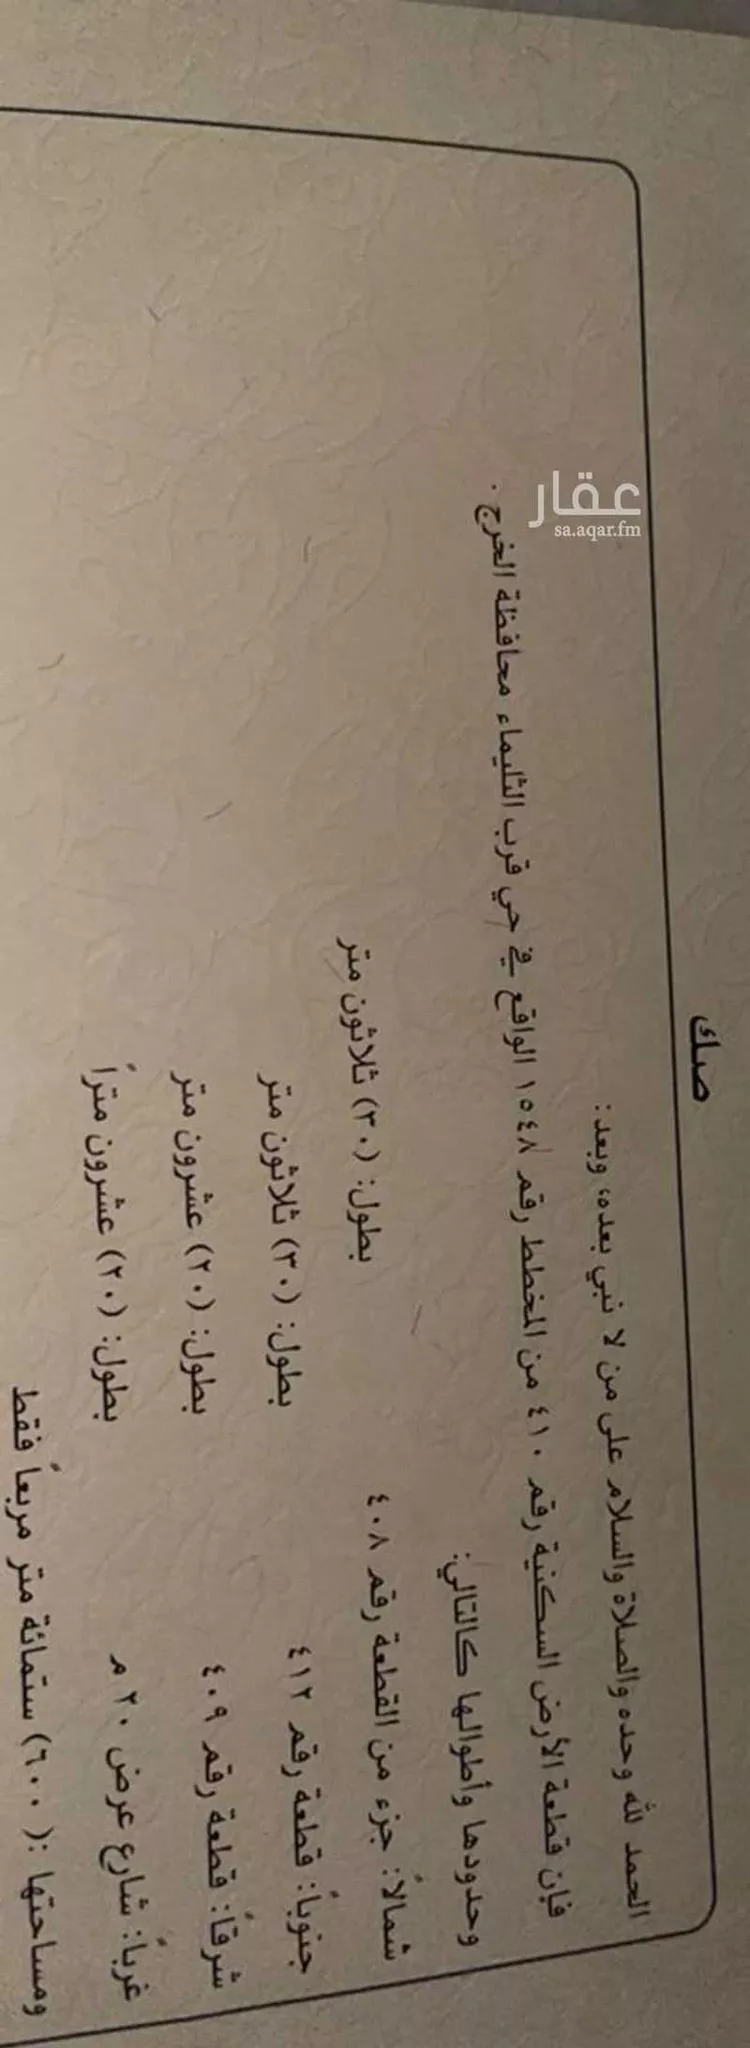 صك
الحمد لله وحده والصلاة والسلام على من لا نبي بعده، وبعد:
فإن قطعة الأرض السكنية رقم ٤١٠ من المخطط رقم ١٥٤٨ الواقع في حي قرب الثليماء محافظة الخرج .
وحدودها وأطوالها كالتالي:
شمالاً: جزء من القطعة رقم ٤٠٨ بطول: (٣٠) ثلاثون متر
جنوباً: قطعة رقم ٤١٢ بطول: (٣٠) ثلاثون متر
شرقاً: قطعة رقم ٤٠٩ بطول: (٢٠) عشرون متر
غرباً: شارع عرض ٢٠ م بطول: (٢٠) عشرون متراً
ومساحتها :( ٦٠٠) ستمائة متر مربعاً فقط
عقار
sa.aqar.fm